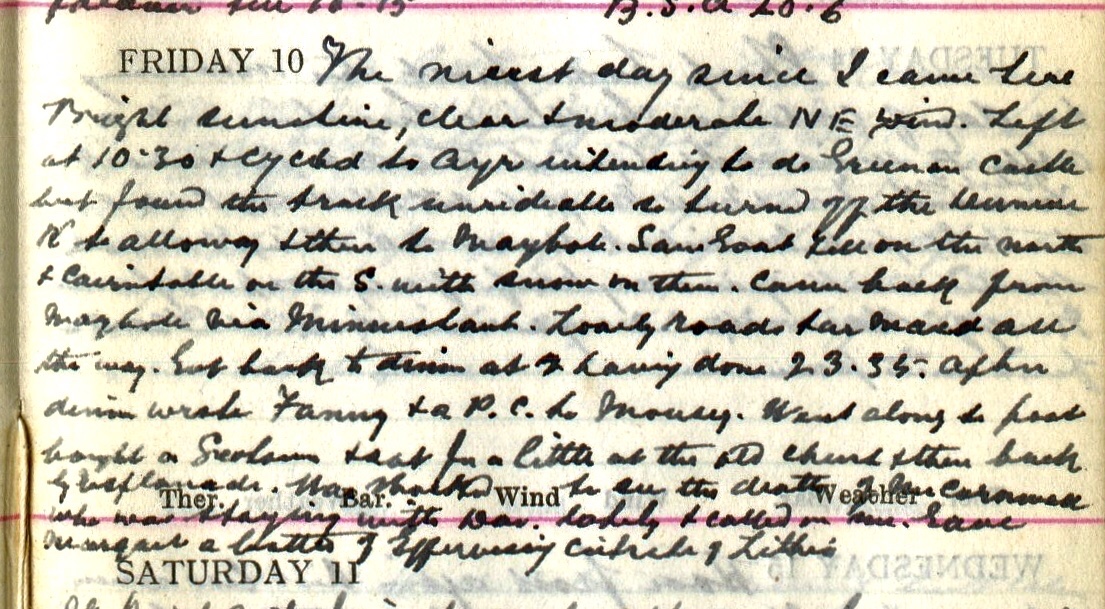 B.S.A 20.6
FRIDAY 10 The nicest day since I came here
Bright sunshine, clear & moderate NE wind. Left
at 10-30 & cycled to Ayr intending to do Greenan Castle
but found the track unrideable so turned off the Dunure
Rd to Alloway & then to Maybole. Saw Goat Fell on the north
& Cairntable on the S. with snow on them. Came back from
Maybole via Minnishant. Lovely roads tar macd all
the way. Got back to dinner at 2 having done 23.35. After
dinner wrote Fanny & a P.C. to Mousey. Went along to post
bought a Scotsman & sat for a little at the old church & then back
by Esplanade. Was shocked to see the death of
Ther. Bar. Wind Weather
who was staying with lately & called on me. Gave
Margaret a bottle of Effervescing Citrate of Lithia
SATURDAY 11